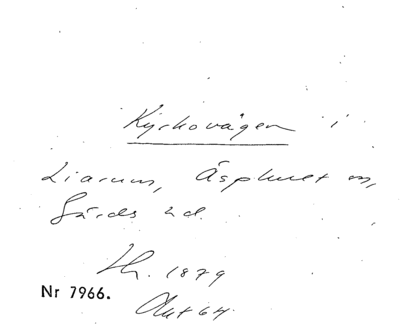 Kyrkovägen i
Liarum, Äsphult sn,
Gärds hd.
1879
Nr 7966.
Okt 64.